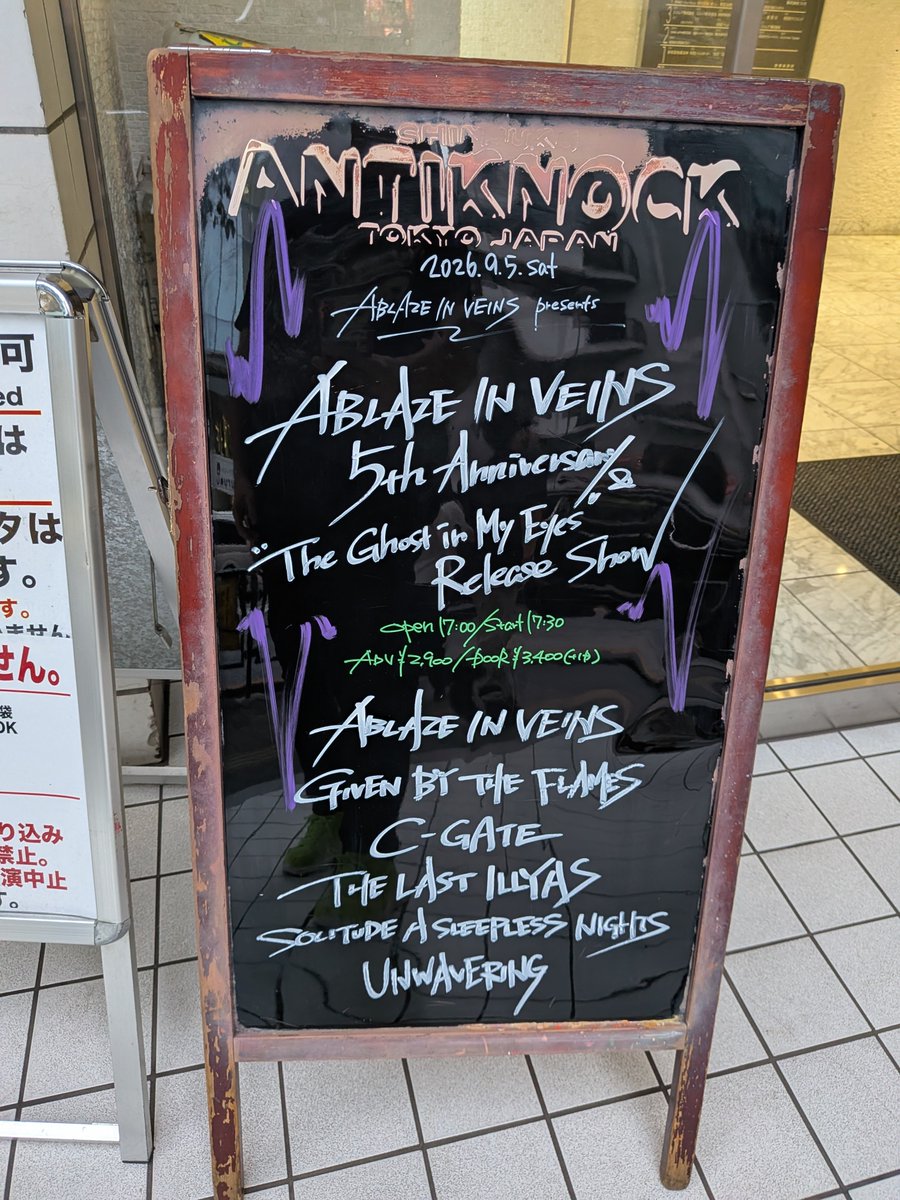 SHINJUKU
ANTIKNOCK
TOKYO JAPAN
2026.9.5.sat
ABLAZE IN VEINS presents
ABLAZE IN VEINS
5th Anniversary &
"The Ghost in My Eyes"
Release Show
open 17:00/Start 17:30
ADV ¥2,900/DOOR ¥3,400(+1D)
ABLAZE IN VEINS
GIVEN BY THE FLAMES
C-GATE
THE LAST ILLYAS
SOLITUDE A SLEEPLESS NIGHTS
UNWAVERING
可
ed
は
タは
す。
す。
いません
せん。
袋
OK
り込み
禁止。
演中止
す。